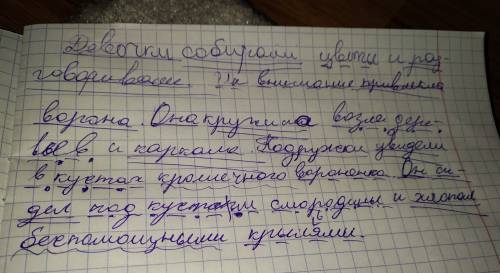 Девочки собирали цветы и раз-
говаривали. Их внимание привлекла
ворона. Она кружила возле дере-
вьев и каркала. Подружки увидели
в кустах крошечного вороненка. Он си-
дел под кустами смородины и хлопал
беспомощными крыльями.